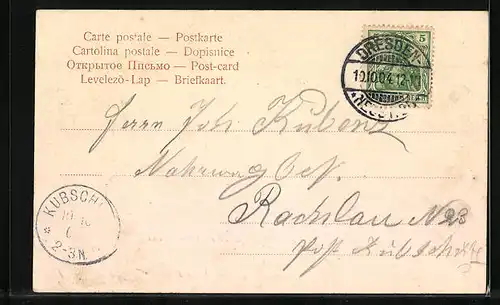 Carte postale — Postkarte
Cartolina postale — Dopisnice
Открытое Письмо — Post-card
Levelező-Lap — Briefkaart.
5
DRESDEN-
10.10.04.12-
*NEUST.
Herrn Joh Kubenz
Nahrungsbes.
Rachlau No 23
Post Kubschütz
KUBSCH
2-3N.